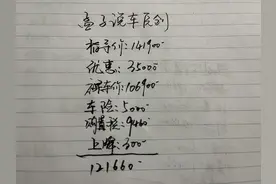 子说车原创
指导价:141900
优惠:35000
裸车价:106900
车险:5000
购置税:9460
上牌:300
121660